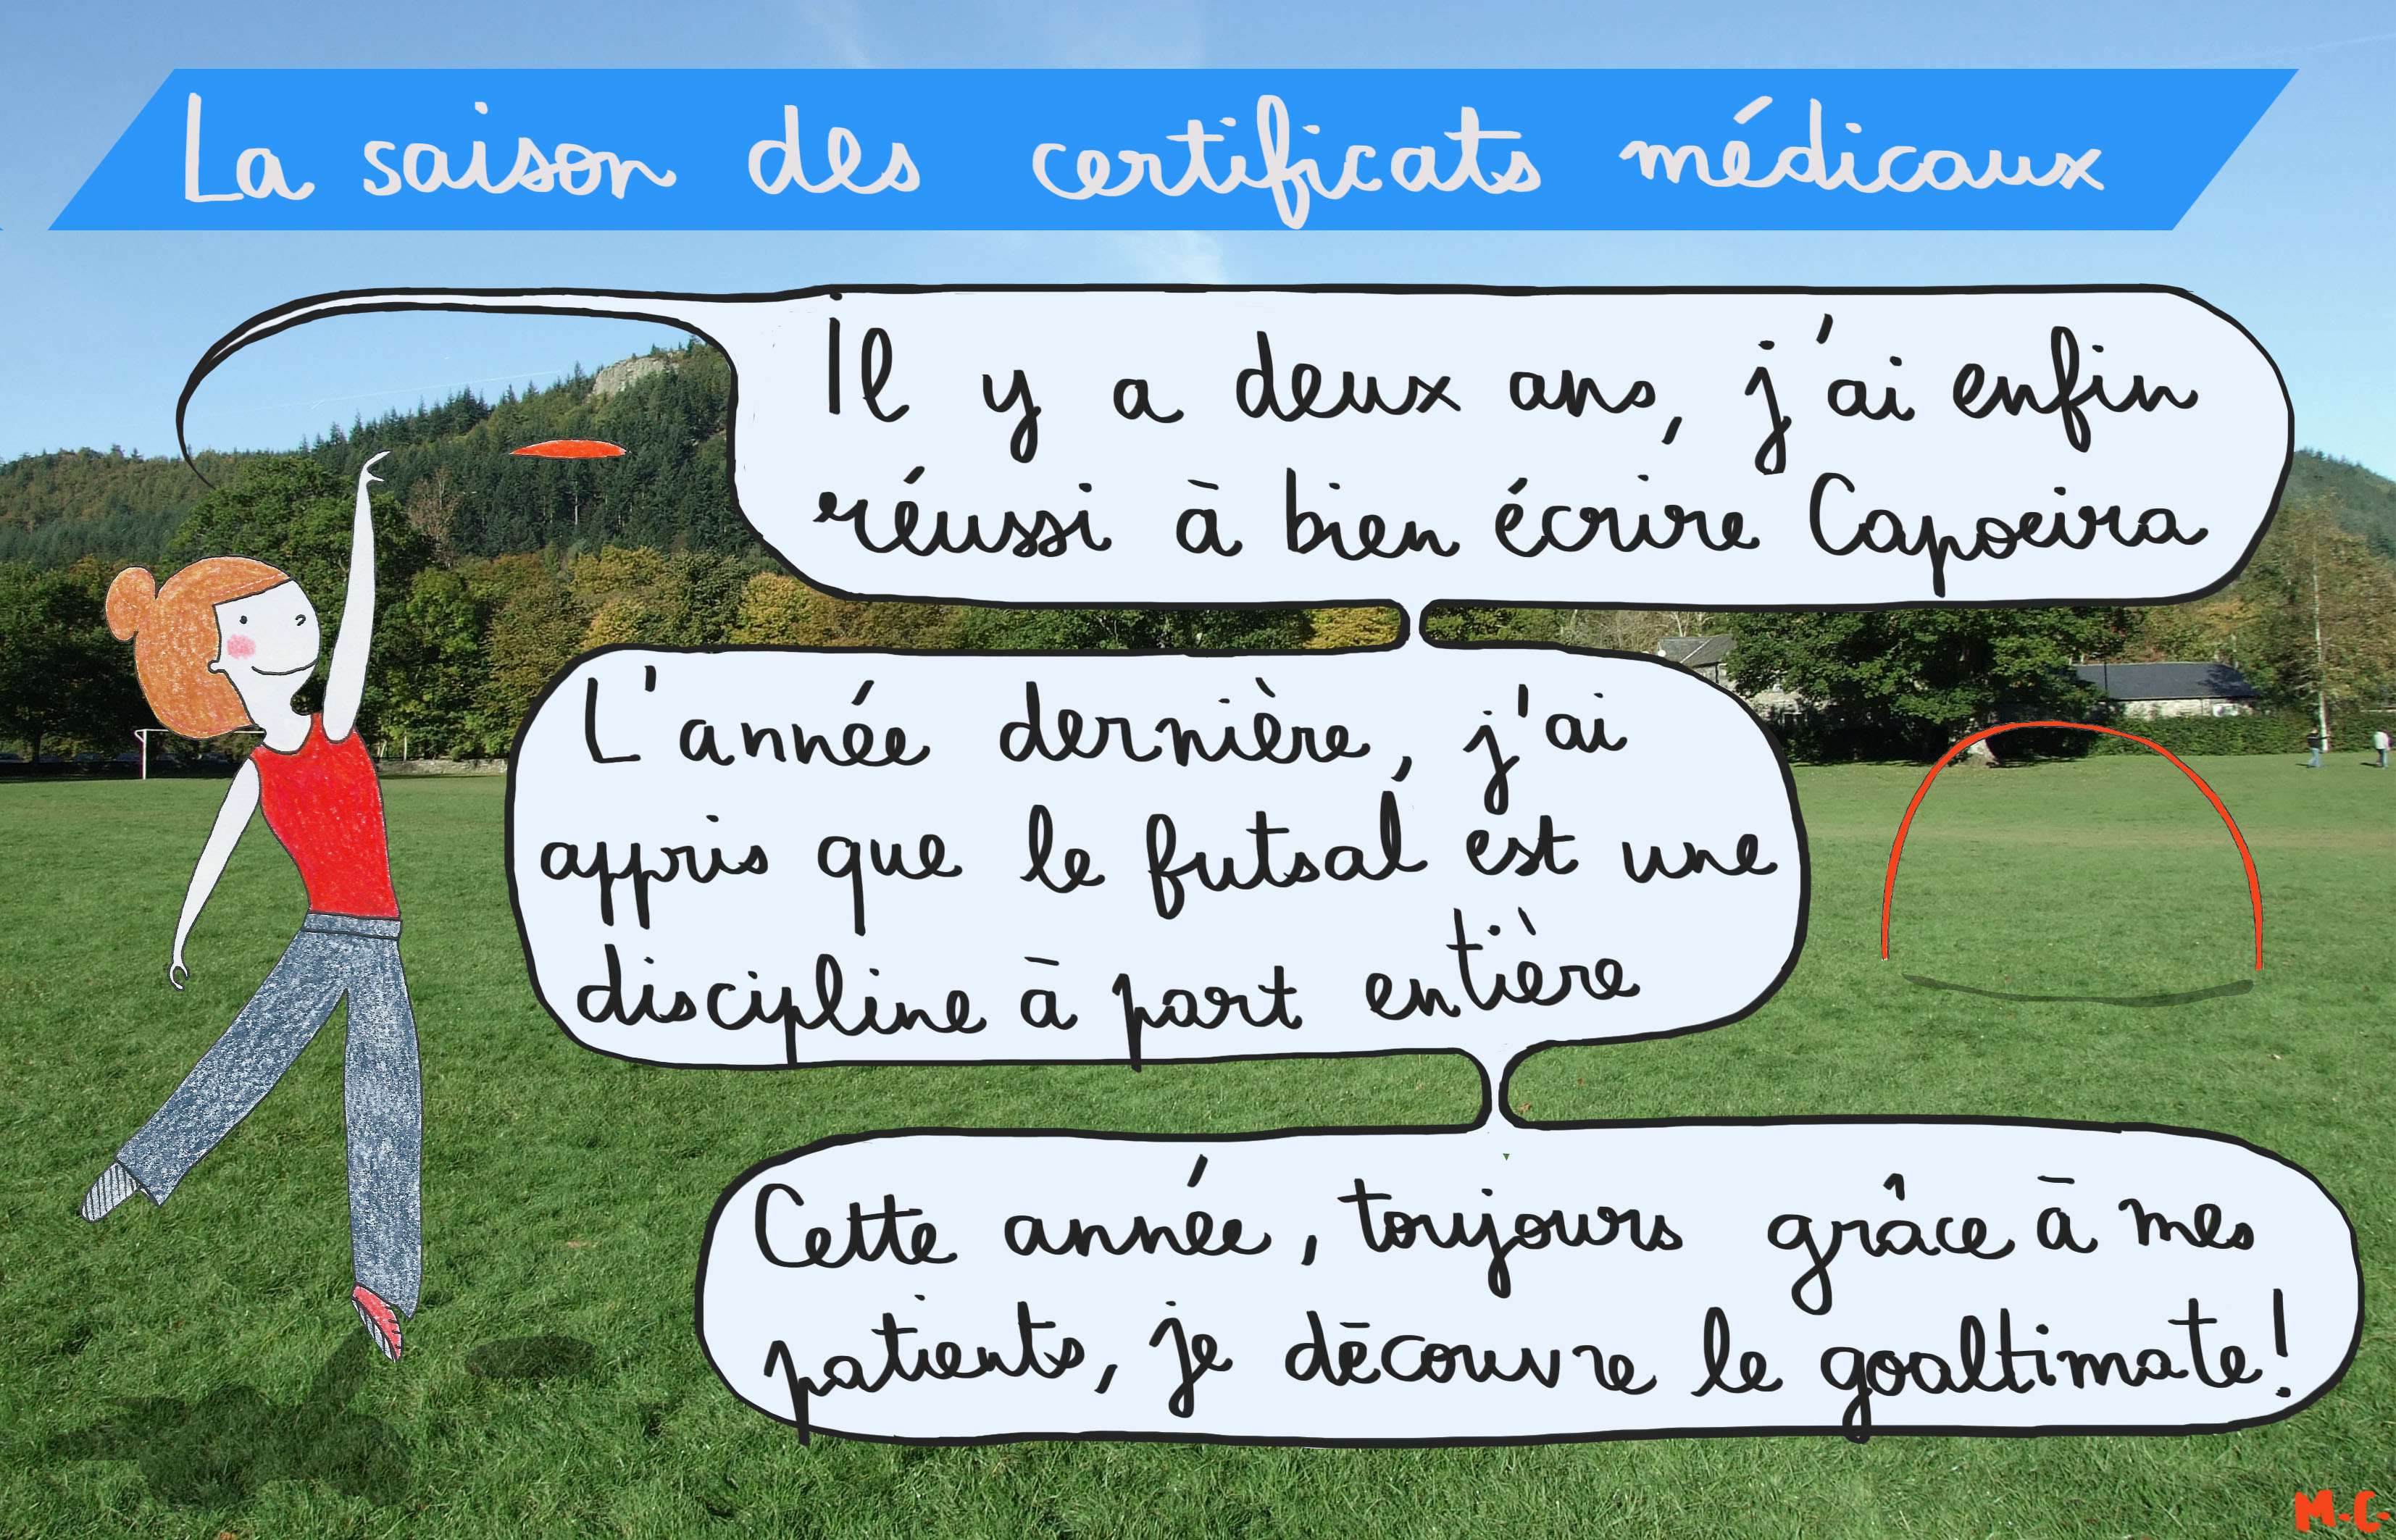 La saison des certificats médicaux
Il y a deux ans, j'ai enfin
réussi à bien écrire Capoeira
L'année dernière, j'ai
appris que le futsal est une
discipline à part entière
Cette année, toujours grâce à mes
patients, je découvre le goaltimate!
M.C.